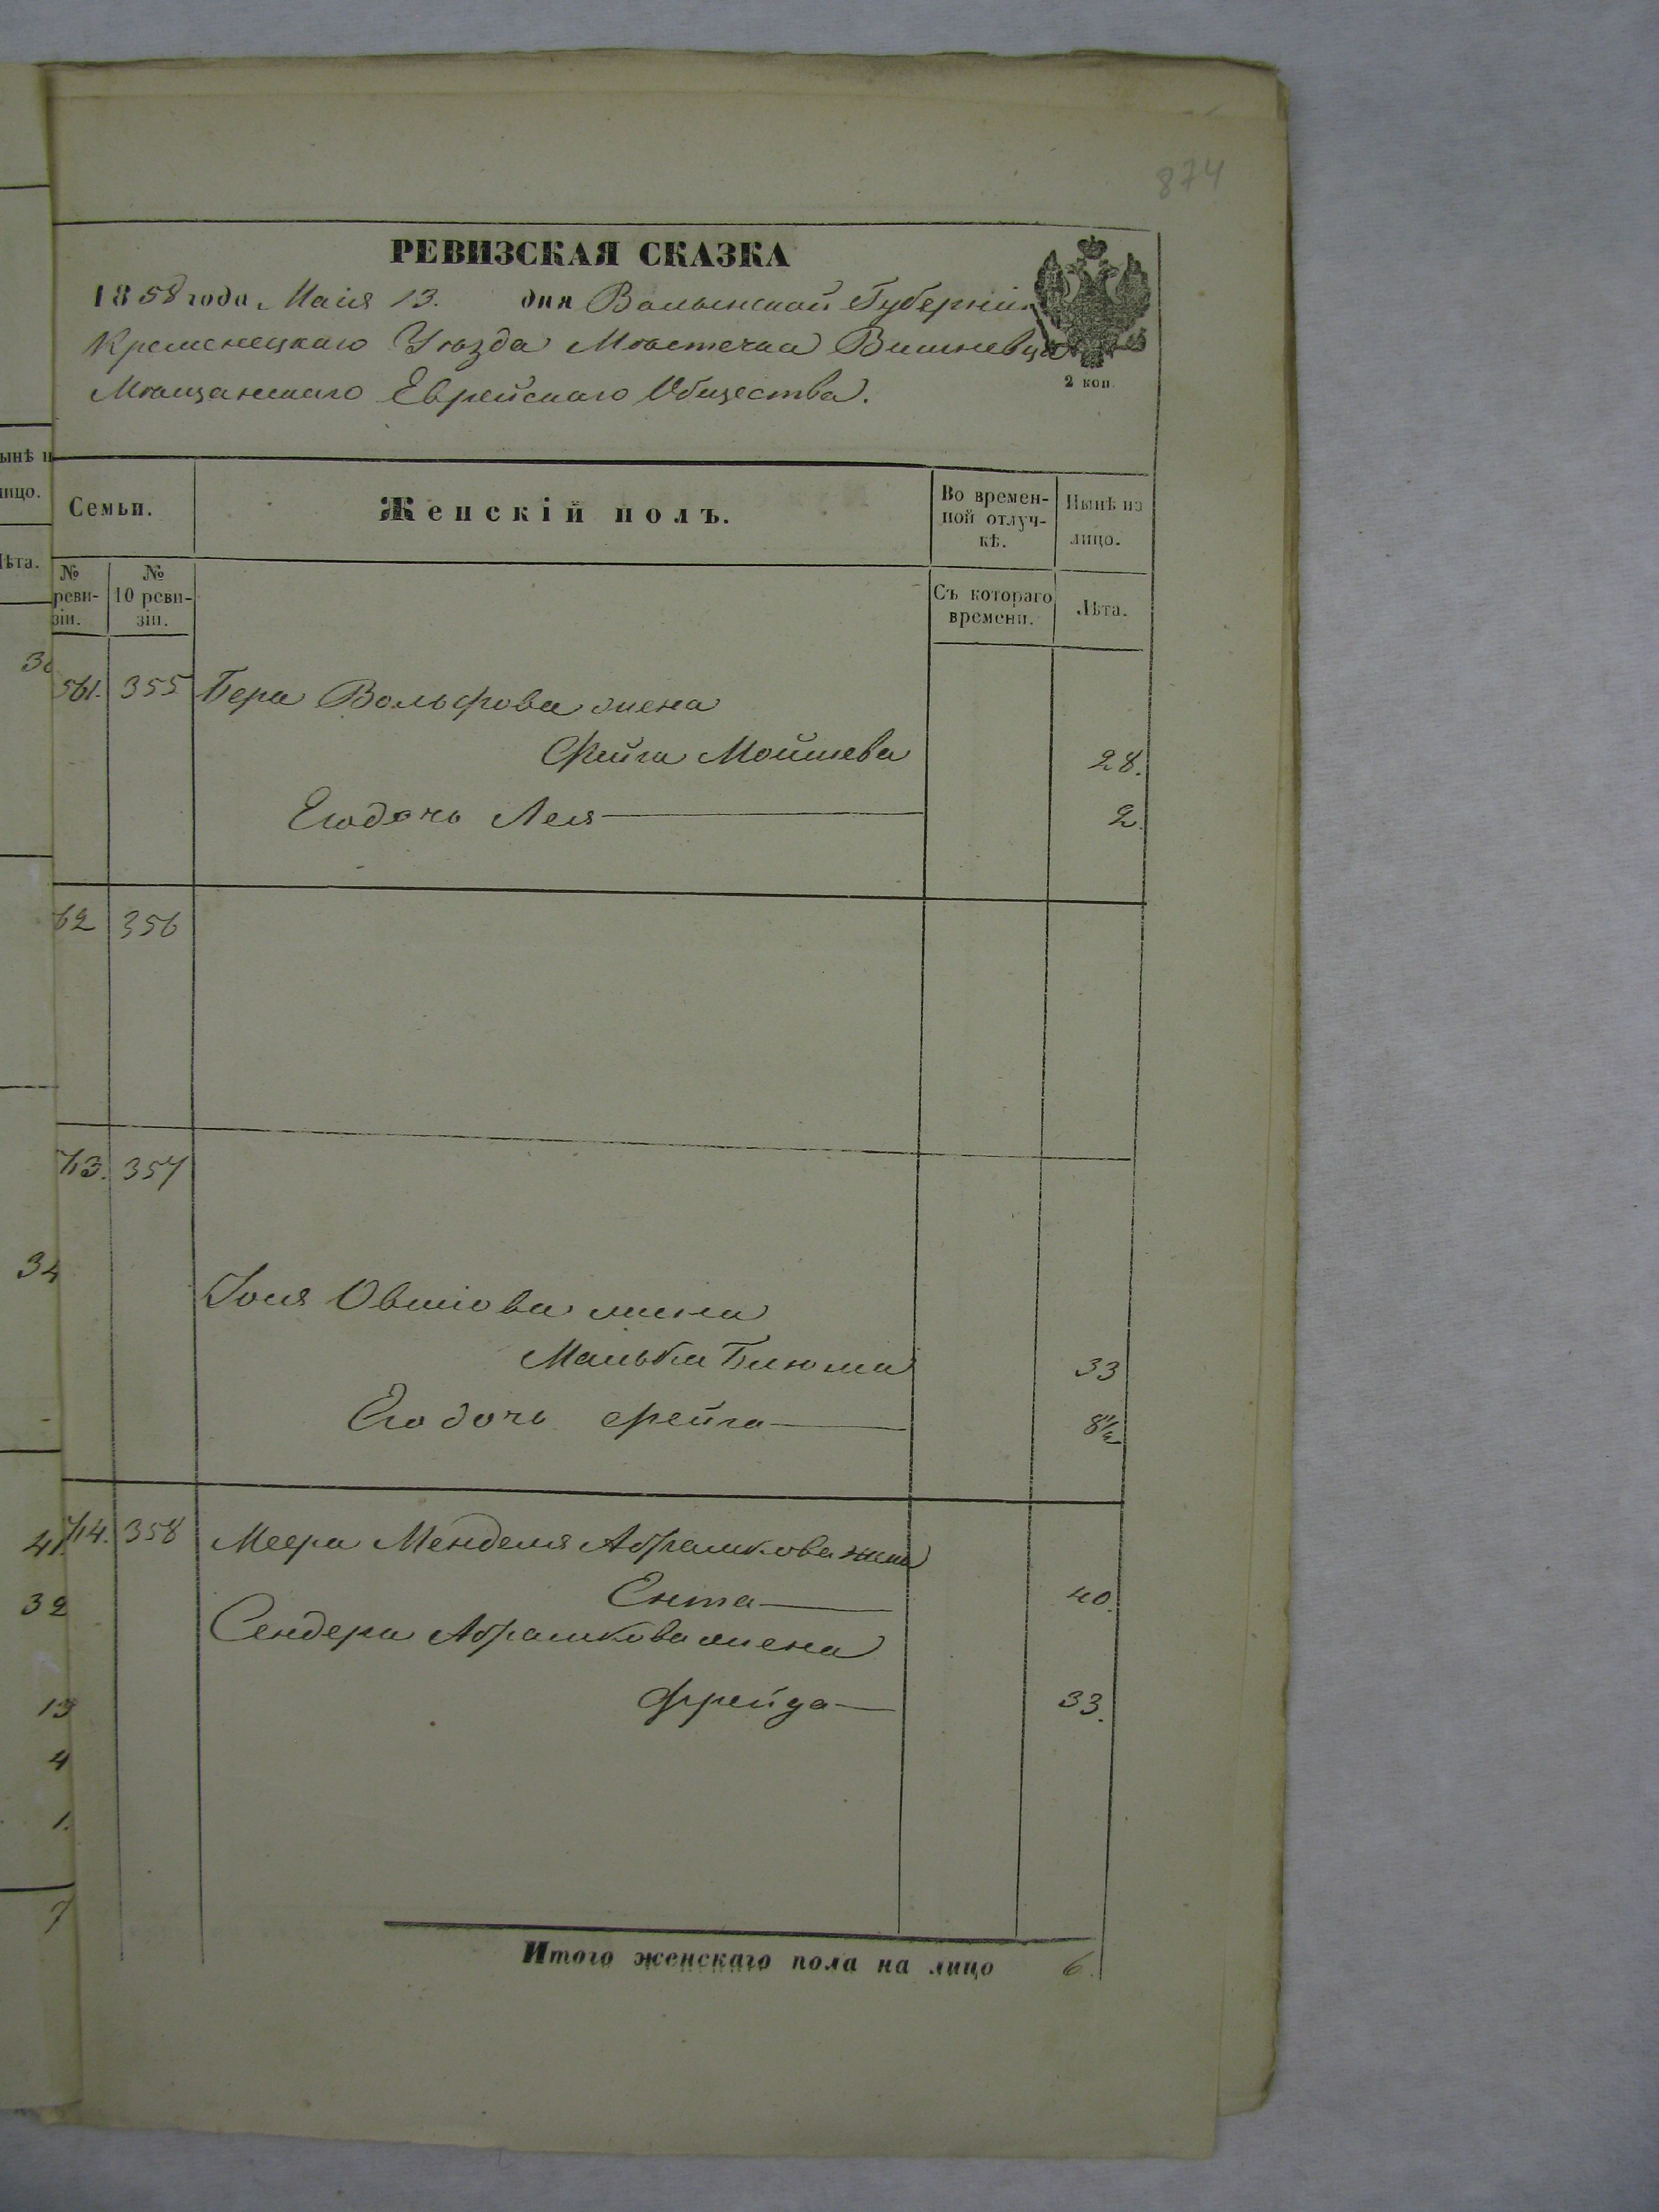 874
РЕВИЗСКАЯ СКАЗКА
1858 года Маія 13. дня Волынской Губерніи
Кременецкаго Уѣзда Мѣстечка Вишневца
Мѣщанскаго Еврейскаго Общества.
2 коп.
ынѣ н
лицо.
Лѣта.
Семьи.
Женскій полъ.
Во времен-
ной отлуч-
кѣ.
Нынѣ на
лицо.
№
реви-
зіи.
№
10 реви-
зіи.
Съ котораго
времени.
Лѣта.
561. 355 Бера Вольфова жена
Фейга Мошева 28.
Его дочь Лея 2.
62 356
13. 357
34
Іося Овшіова жена
Малька Блюма 33
Его дочь Фейга 8½
41. 14. 358 Меера Менделя Абрамкова жена
32 Ента 40.
Сендера Абрамкова жена
13 Фрейда 33.
4
1.
7
Итого женскаго пола на лицо 6.